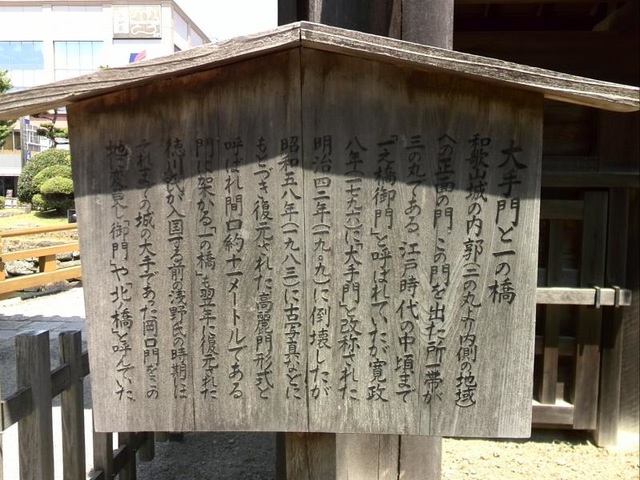 大手門と一の橋
和歌山城の内郭(二の丸より内側の地域)
への正面の門、この門を出た所一帯が
三の丸である。江戸時代の中頃まで
「一之橋御門」と呼ばれていたが寛政
八年(一七九六)に「大手門」と改称された
明治四二年(一九〇九)に倒壊したが
昭和五八年(一九八三)に古写真などに
もとづき復元された高麗門形式と
呼ばれ間口約十一メートルである
門に架かる「一の橋」も翌年に復元された
徳川氏が入国する前の浅野氏の時期に
それまでの城の大手であった岡口門をこの
地に変更し「御門」や「北ノ橋」と呼んでいた。